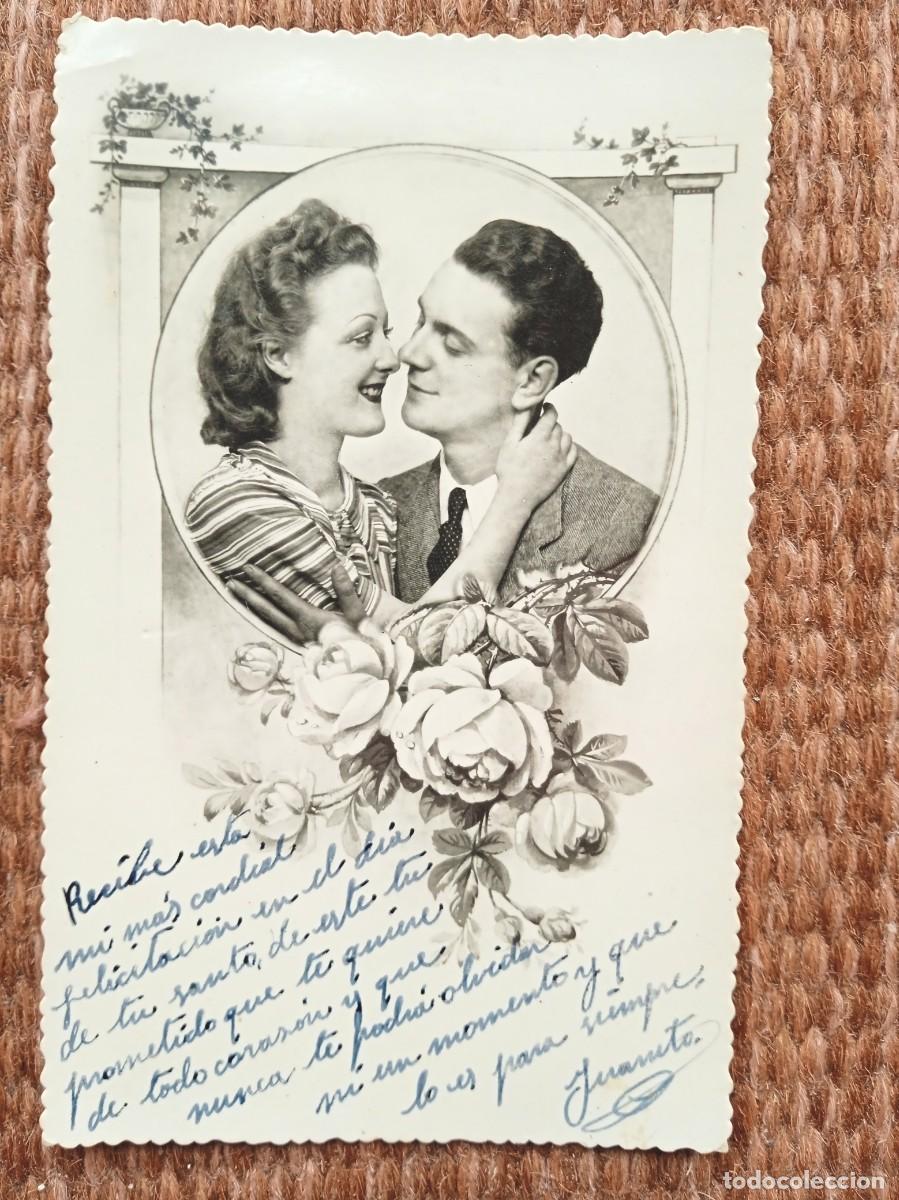 Recibe esta
mi más cordial
felicitación en el día
de tu santo, de este tu
prometido que te quiere
de todo corasón y que
nunca te podrá olvidar
ni un momento y que
lo es para siempre.
Juanito.
todocoleccion